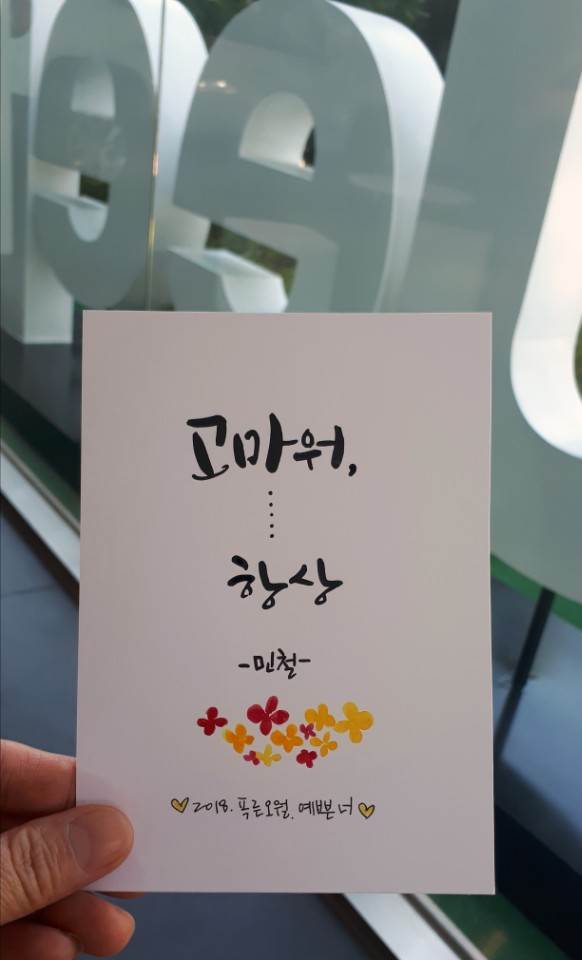 고마워,
항상
-민철-
2018. 푸른오월, 예쁜너